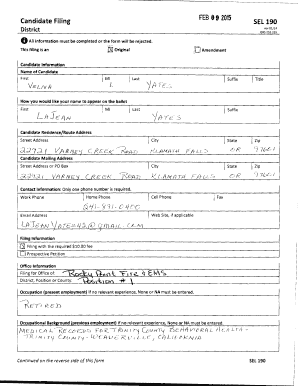 Candidate Filing
FEB 09 2015
SEL 190
District
All information must be completed or the form will be rejected.
This filing is an Original Amendment
Candidate Information
Name of Candidate
First MI Last Suffix Title
Velma L Yates
How you would like your name to appear on the ballot
First MI Last Suffix
LaJean Yates
Candidate Residence/Route Address
Street Address City State Zip
22921 Varney Creek Road Klamath Falls OR 97601
Candidate Mailing Address
Street Address or PO Box City State Zip
22921 Varney Creek Road Klamath Falls OR 97601
Contact Information: Only one phone number is required.
Work Phone Home Phone Cell Phone Fax
Email Address Web Site, if applicable
Filing Information
Filing with the required $10.00 fee
Prospective Petition
Office Information
Filing for Office of: Rocky Point Fire & EMS
District, Position or County: Position #1
Occupation (present employment) If no relevant experience, None or NA must be entered.
Retired
Occupational Background (previous employment) If no relevant experience, None or NA must be entered.
Medical Records for Trinity County Behavioral Health-
Trinity County - Weaverville, California
Continued on the reverse side of this form
SEL 190